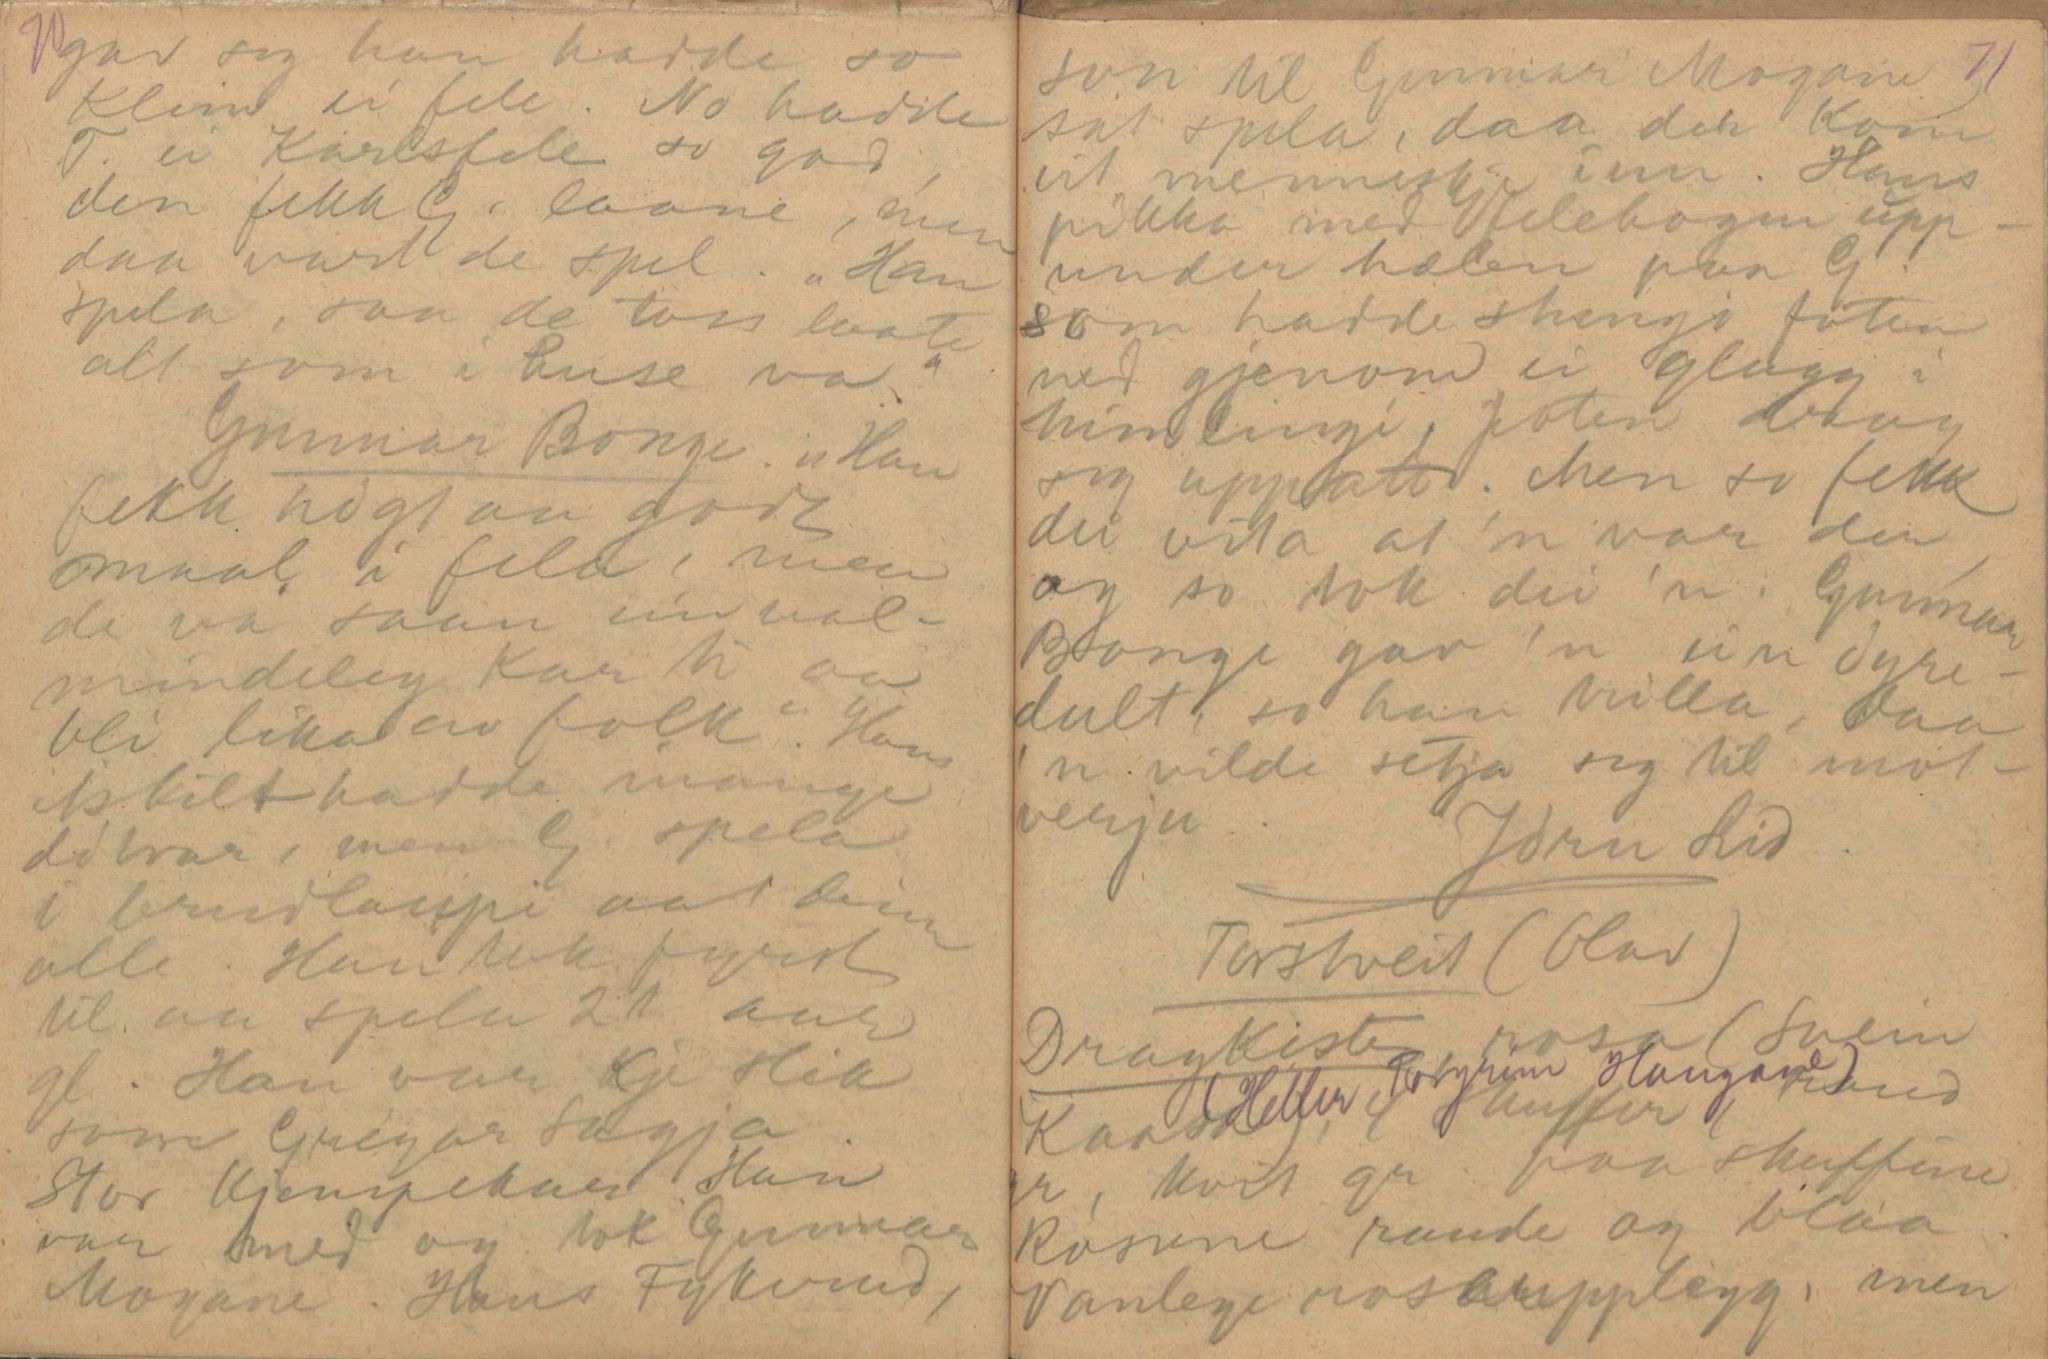 70
gav seg han hadde so
klein ei fele. No hadde
T. ei Karlsfele so god,
den fekk G. laane, men
daa vart de spel. „Han
spela, saa de toss laate
alt som i huse va."
Gunnar Bonge. „Han
fekk høgt aa godt
maal i fela, men
de va saan ein val-
mindeleg kar ti aa
bli lika av folk". Hans
Askilt hadde mange
døtrar, men G. spela
i brudlaupi aat deim
alle. Han tok fyrst
til aa spela 21 aar
gl. Han var kje slik
som Gregar Sagja.
Stor kjempekar. Han
var med og tok Gunnar
Mogane. Hans Fykerud,
71
son til Gunnar Mogane
sat spela, daa der kom
eit menneskje inn. Hans
pikka med felebogen upp-
under hælen paa G.
som hadde stengi foten
ned gjenom ei glugg i
himlingi, foten drog
seg uppatt. Men so fekk
dei vita at 'n var der,
og so tok dei 'n. Gunnar
Bonge gav 'n ein dyre-
dult, so han trilla, daa
'n vilde setja seg til mot-
verju.
Jørn Lid.
Torstveit (Olav)
Dragkiste, rosa (Svein
(Heller Torgrim Haugane)
Kaasa), 4 skuffur, raud
gr, kvit gr. paa skuffune
Rosune raude og blaa.
Vanlege roseupplegg, men